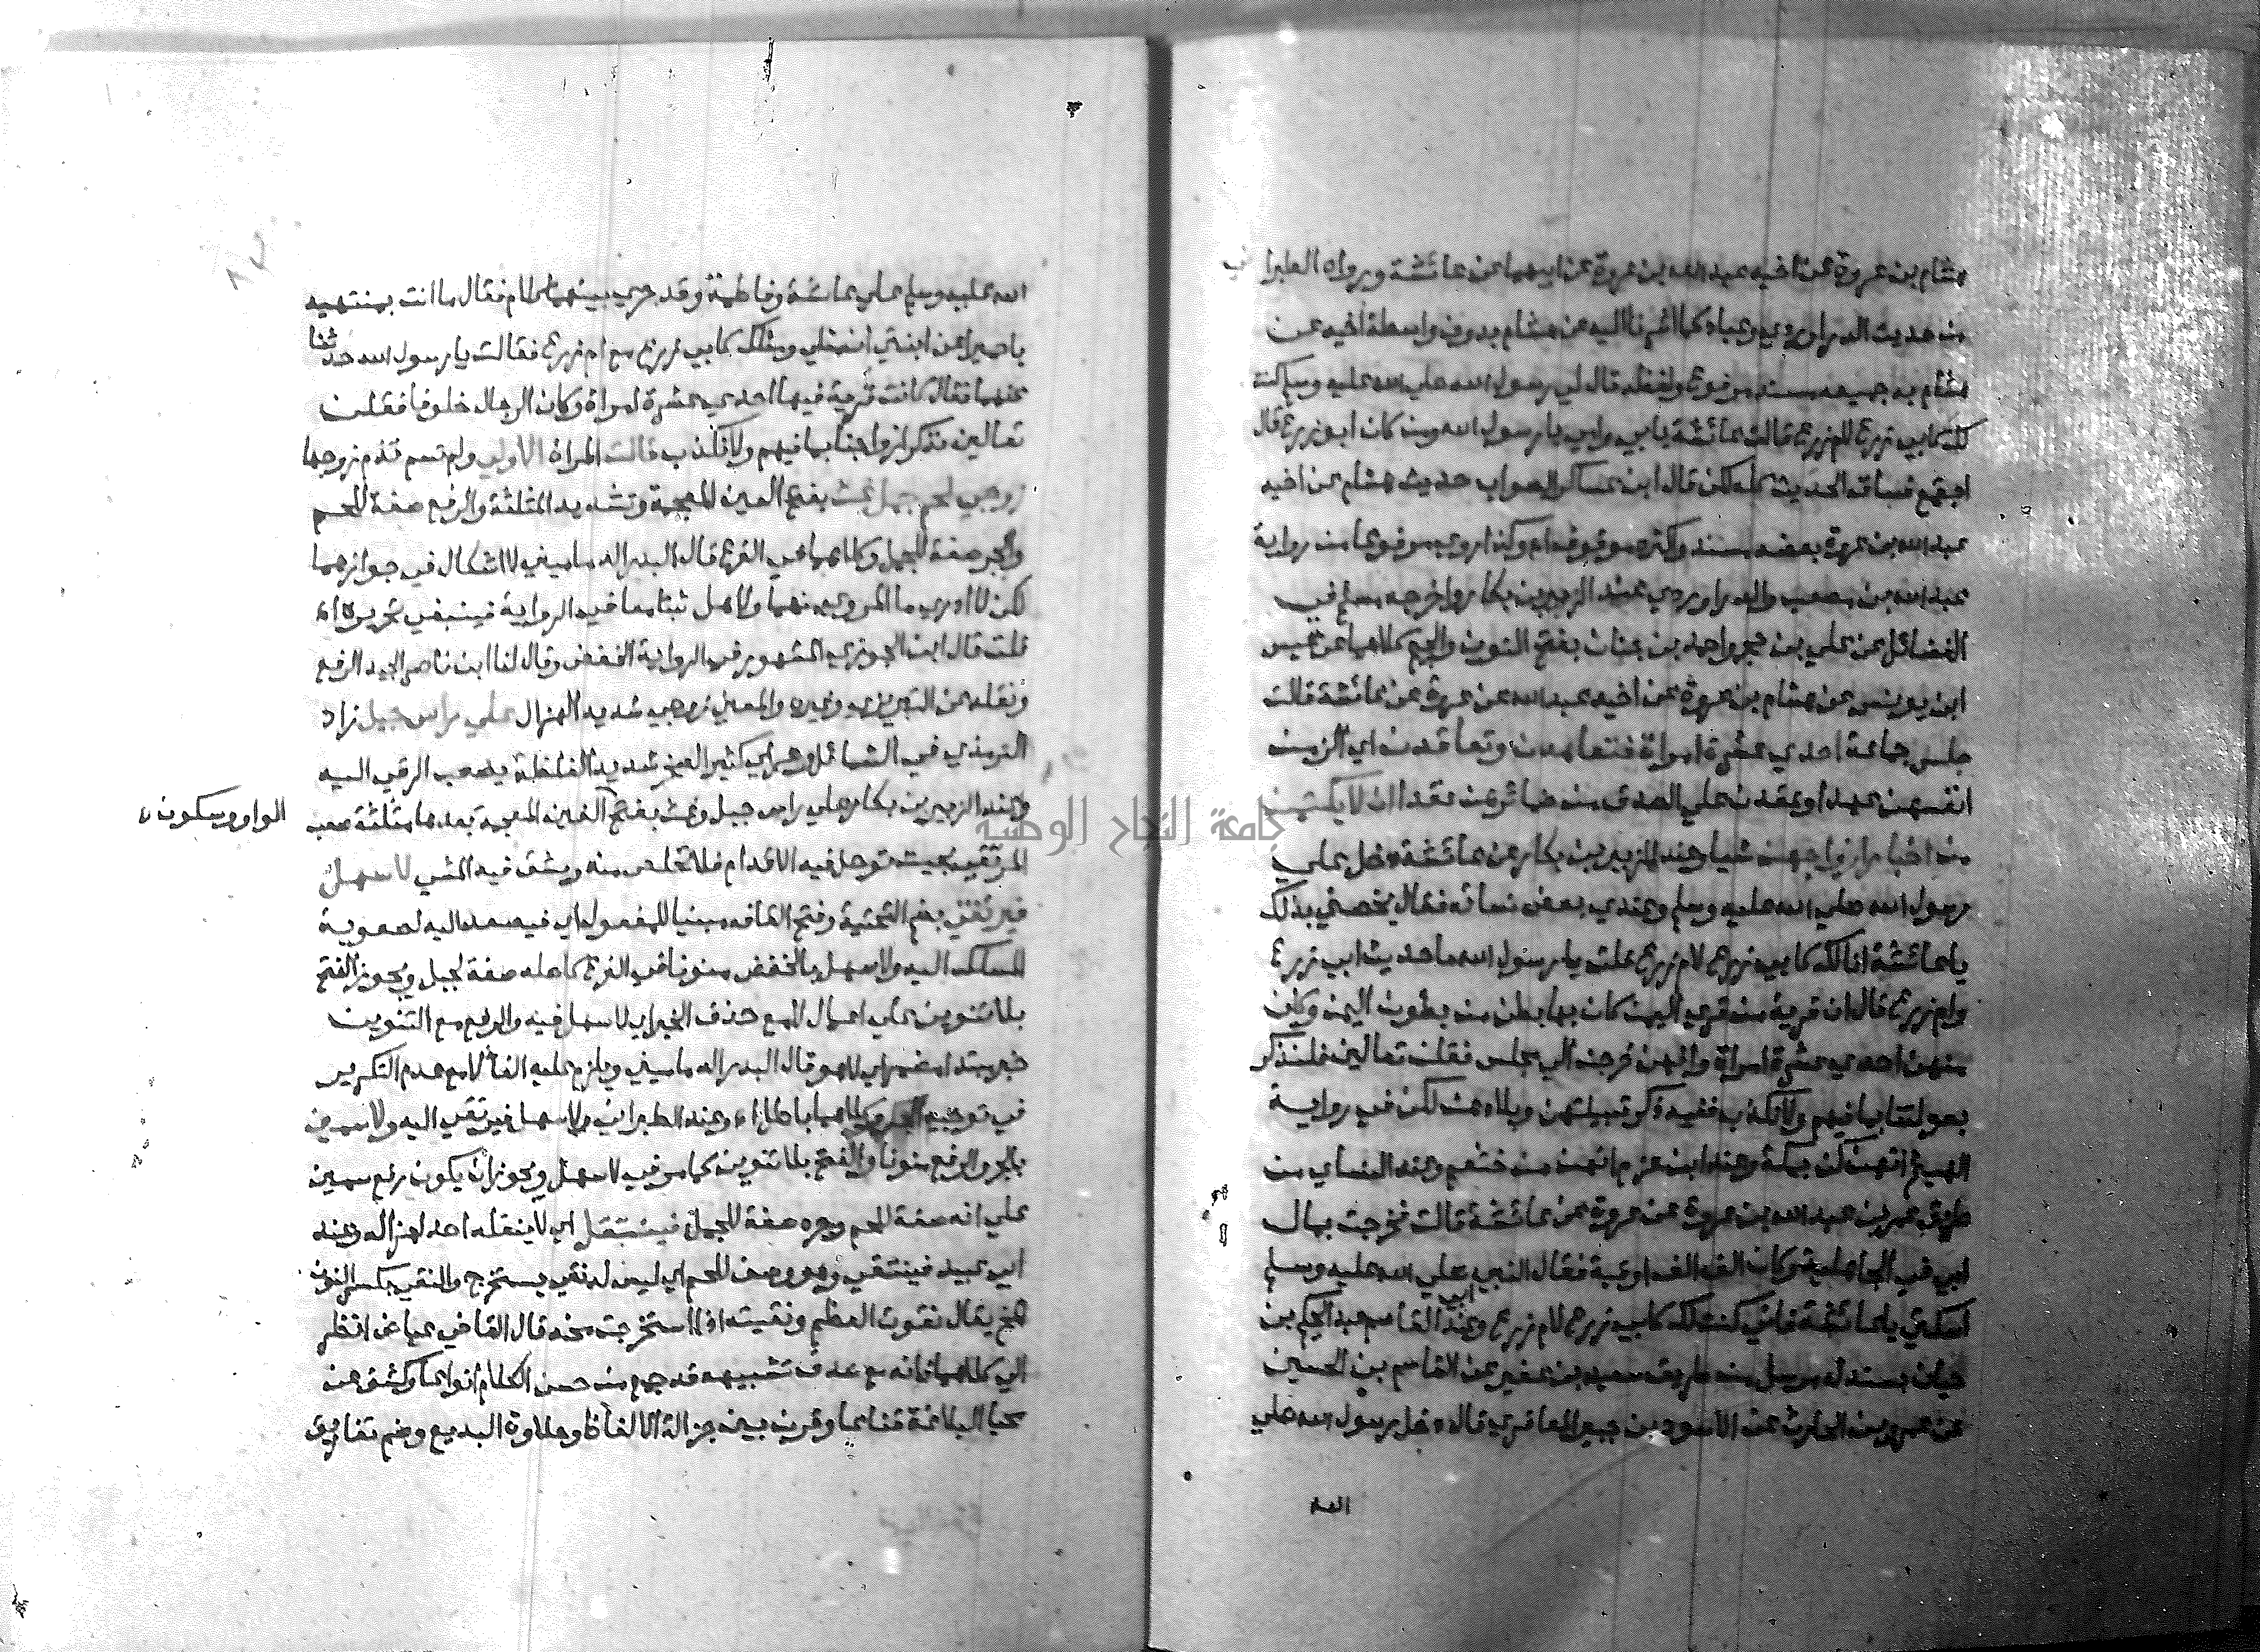 هشام بن عروة عن اخيه عبد الله بن عروة عن ابيهما عن عائشة ورواه الطبراني
من حديث الدراوردي وعباد كما اشرنا اليه عن هشام بدون واسطة اخيه عن
هشام به جميعه مسند مرفوع ولفظه قال لي رسول الله صلي الله عليه وسلم كنت
لك كابي زرع لام زرع قالت عائشة بابي وامي يا رسول الله ومن كان ابو زرع قال
اجتمع فساق الحديث كله لكن قال ابن عساكر الصواب حديث هشام عن اخيه
عبد الله بن عروة بعضه مسند واكثره موقوف وكذا روي مرفوعا من رواية
عبد الله بن مصعب والدراوردي عند الزبير بن بكار واخرجه مسلم في
الفضائل عن علي بن حجر واحمد بن جناب بفتح النون والجيم كلاهما عن عيسي
ابن يونس عن هشام بن عروة عن اخيه عبد الله عن عروة عن عائشة قالت
جلس جماعة احدي عشرة امراة فتعاهدن وتعاقدن اي الزمن
انفسهن عهدا وعقدن علي الصدق من ضمائرهن عقدا ان لا يكتمن
من اخبار ازواجهن شيا وعند الزبير بن بكار عن عائشة دخل علي
رسول الله صلي الله عليه وسلم وعندي بعض نسائه فقال يخصني بذلك
يا عائشة انا لك كابي زرع لام زرع قلت يا رسول الله ما حديث ابي زرع
وام زرع قال ان قرية من قري اليمن كان بها بطن من بطون اليمن وكان
منهن احدي عشرة امراة وانهن خرجن الي مجلس فقلن تعالين فلنذكر
بعولتنا بما فيهم ولا نكذب ففيه ذكر قبيلتهن وبلادهن لكن في رواية
الهيثم انهن كن بمكة وعند ابن حزم انهن من خثعم وعند النساي من
طريق عمر بن عبد الله بن عروة عن عروة عن عائشة قالت فخرت بمال
ابي في الجاهلية وكان الف الف اوقية فقال النبي صلي الله عليه وسلم
اسكتي يا عائشة فاني كنت لك كابي زرع لام زرع وعند ابي القاسم عبد الحكم بن
حيان بسند له مرسل من طريق سعيد بن عفير عن القاسم بن الحسين
عن عمرو بن الحارث عن الاسود بن جبر المعافري قال دخل رسول الله صلي
الله
الله عليه وسلم علي عائشة وفاطمة وقد جري بينهما كلام فقال ما انت بمنتهيه
يا حميرا عن ابنتي ان مثلي ومثلك كابي زرع مع ام زرع فقالت يا رسول الله حدثنا
عنهما فقال كانت قرية فيها احدي عشرة امراة وكان الرجال خلوفا فقلن
تعالين نذكر ازواجنا بما فيهم ولا نكذب قالت المراة الاولي ولم تسم تذم زوجها
زوجي لحم جمل غث بفتح الغين المعجمة وتشديد المثلثة والرفع صفة للحم
والجر صفة للجمل وكلاهما في الفرع قال البدر الدماميني لا اشكال في جوازهما
لكن لا ادري ما المروي منهما ولا هل ثبتا معا في الرواية فينبغي تحريره اه
قلت قال ابن الجوزي المشهور في الرواية الخفض وقال لنا ابن ناصر الجيد الرفع
ونقله عن التبريزي وغيره والمعني زوجي شديد الهزال علي راس جبل زاد
الترمذي في الشمائل وعر اي كثير الصخر شديد الغلظة يصعب الرقي اليه
وعند الزبير بن بكار علي راس جبل وعث بفتح الواو وسكون العين المعجمة بعدها مثلثة صعب
المرتقي بحيث توحل فيه الاقدام فلا تتخلص منه ويشق فيه المشي لا سهل
فيرتقي بضم التحتية وفتح القاف مبنيا للمفعول اي فيصعد اليه لصعوبة
المسلك اليه ولا سهل بالخفض منونا في الفرع كاصله صفة لجبل ويجوز الفتح
بلا تنوين علي اعمال لا مع حذف الخبر اي لا سهل فيه والرفع مع التنوين
خبر مبتدا مضمر اي لا هو قال البدر الدماميني ويلزم عليه الغا لا مع عدم التكرير
في توجيه وكلاهما باطل اه وعند الطبراني ولا سهل فيرتقي اليه ولا سمين
بالجر والرفع منونا والفتح بلا تنوين كما مر في لا سهل ويجوز ان يكون رفع سمين
علي انه صفة للحم وجره صفة للجمل فينتقل اي لا ينقله احد لهزاله وعند
ابي عبيد فينتقي وهو وصف للحم اي ليس له نقي يستخرج والنقي بكسر النون
المخ يقال نقوت العظم ونقيته اذا استخرجت مخه قال القاضي عياض انظر
الي كلامها فانه مع صدق تشبيهه قد جمع من حسن الكلام انواعا وكشف عن
محيا البلاغة قناعا وقرن بين جزالة الالفاظ وحلاوة البديع وضم تفاريق
الواو وسكون
جامعة النجاح الوطنية